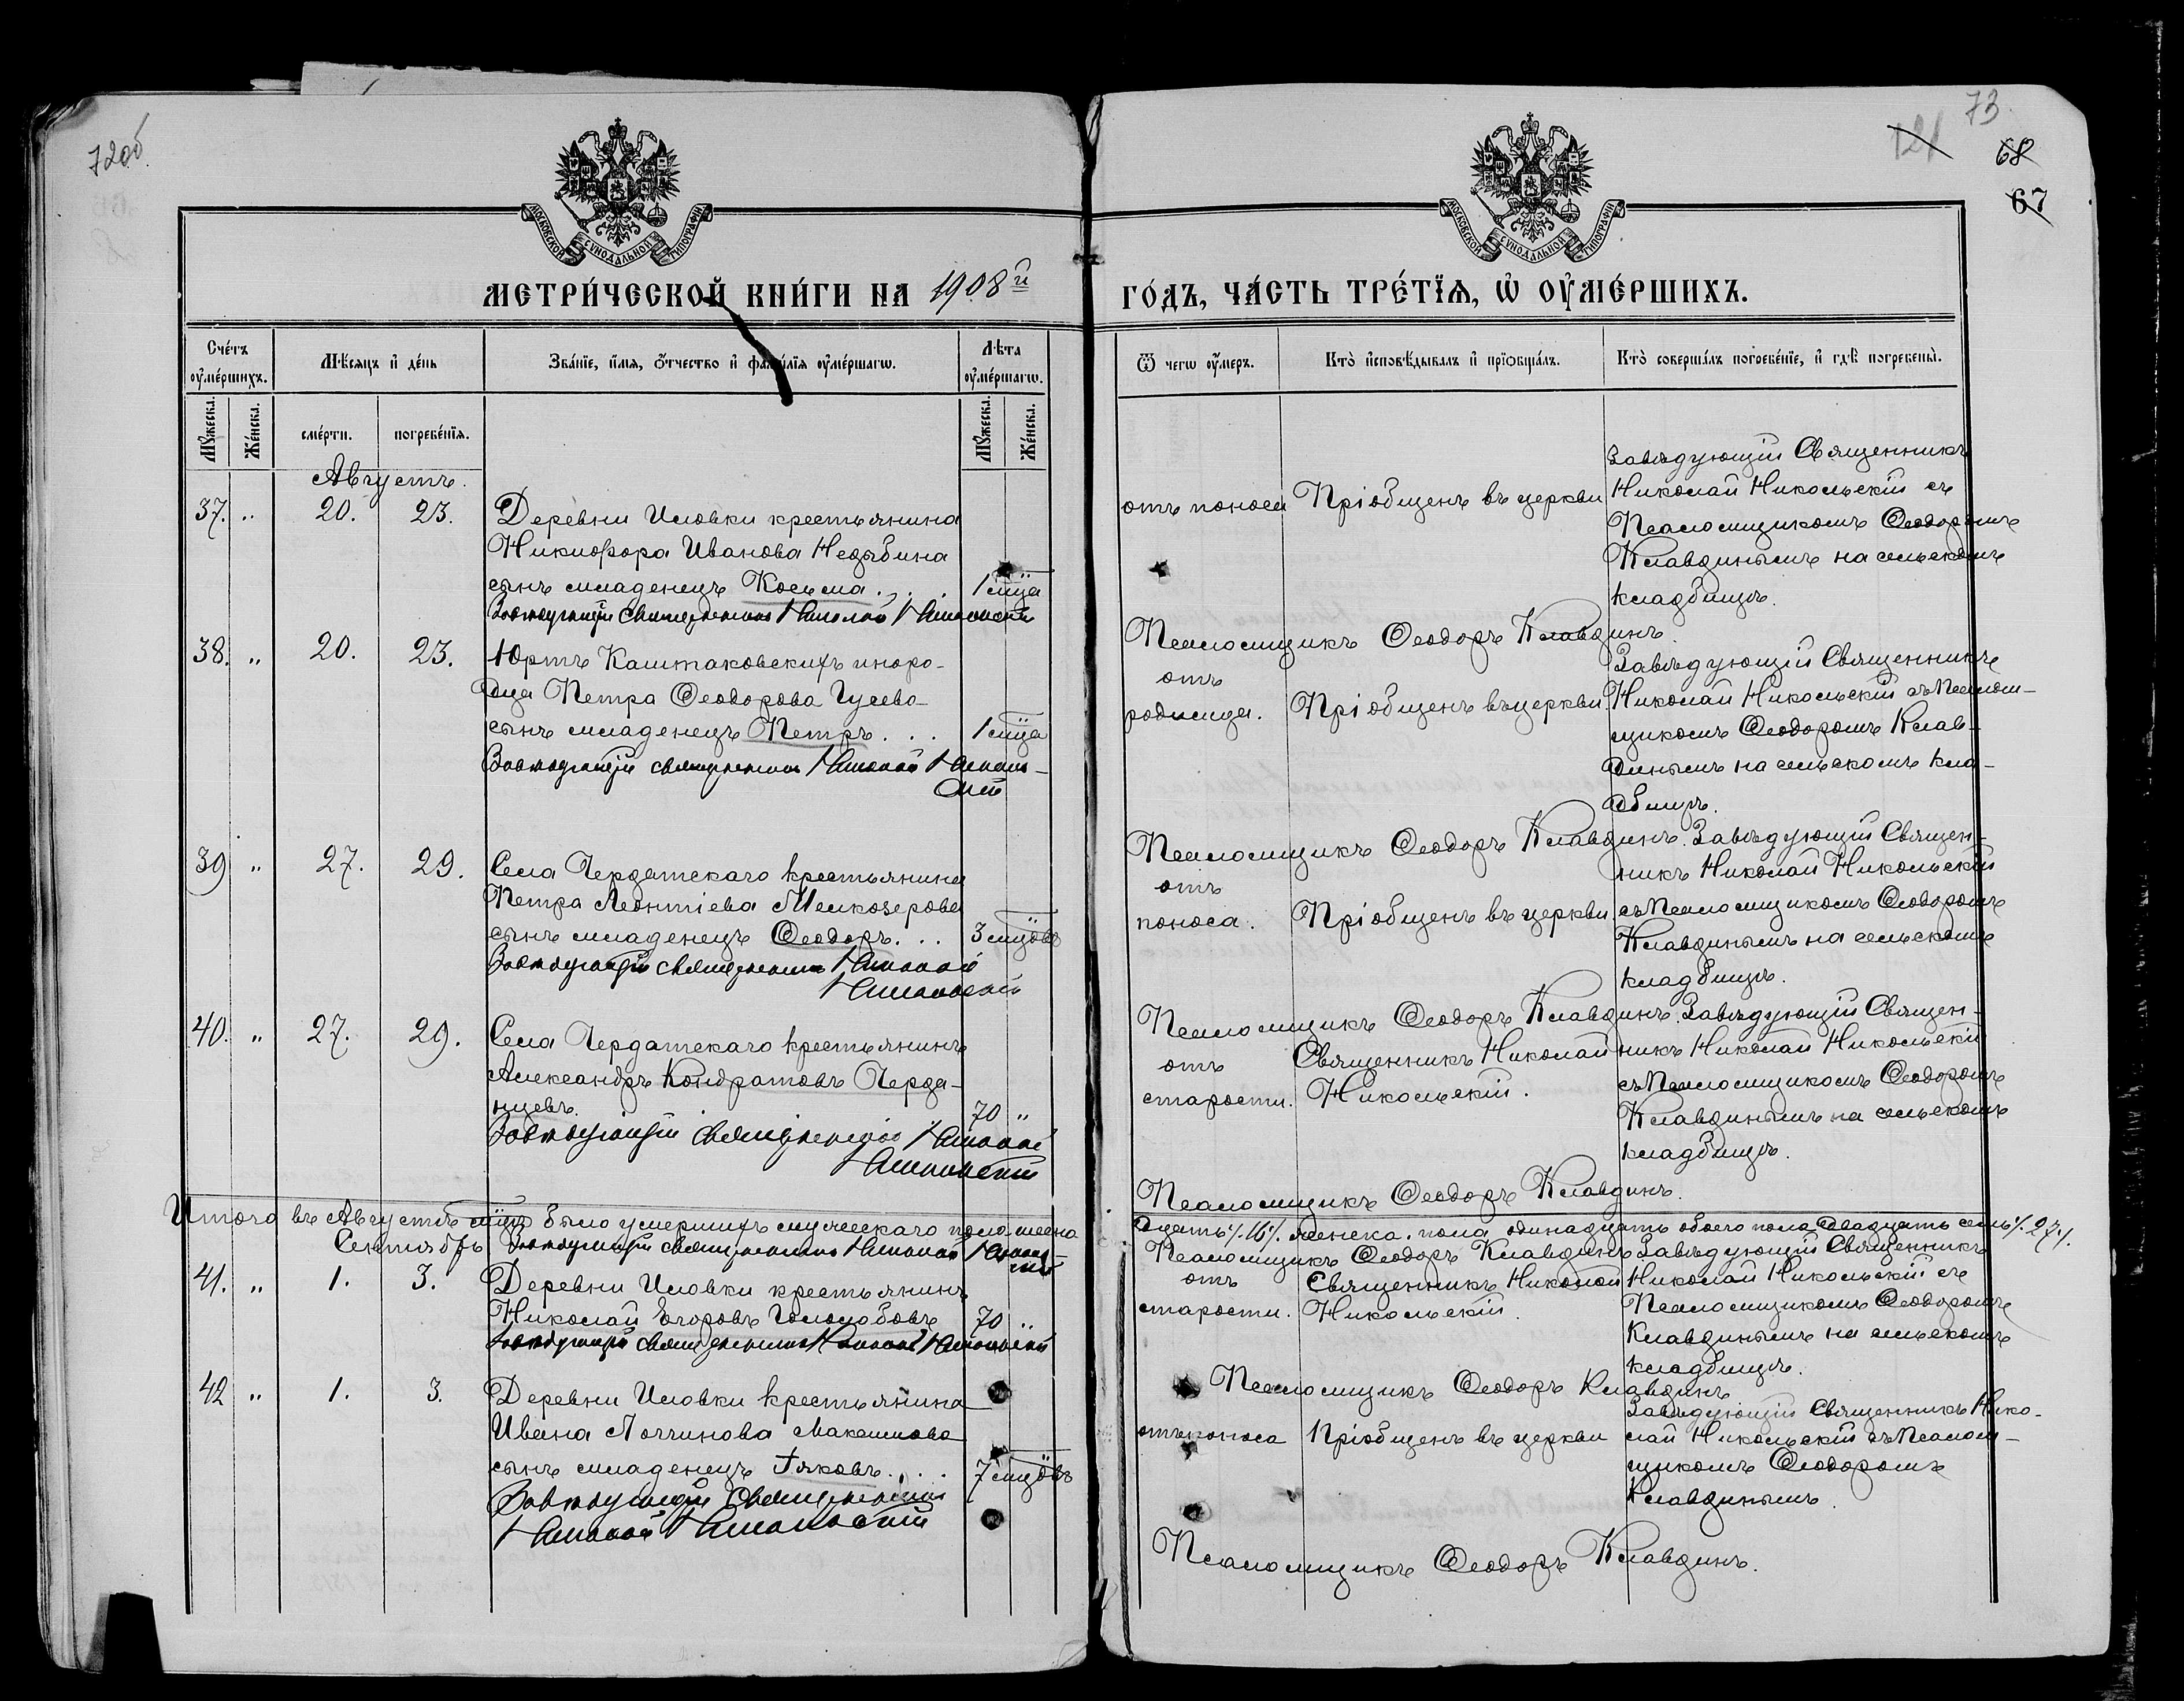 72об.
73.
121
68
67
МОСКОВСКОЙ СѴНОДАЛЬНОЙ ТИПОГРАФІИ
МОСКОВСКОЙ СѴНОДАЛЬНОЙ ТИПОГРАФІИ
МЕТРИ́ЧЕСКОЙ КНИ́ГИ НА 1908й
ГО́ДЪ, ЧА́СТЬ ТРЕ́ТІѦ, Ѡ ОУМЕ́РШИХЪ.
Сче́тъ оуме́ршихъ.
Мѣсяцъ и де́нь
Зва́ніе, и́мя, о́тчество и фами́лія оуме́ршагѡ.
Лѣта оуме́ршагѡ.
Ѿ чегѡ оу́меръ.
Кто̀ исповѣ́дывалъ и прїобща́лъ.
Кто̀ соверша́лъ погребе́ніе, и гдѣ̀ погребены̀.
Мꙋ́жеска.
Же́нска.
сме́рти.
погребе́нїя.
Мꙋ́жеска.
Же́нска.
Августъ.
37. „ 20. 23.
Деревни Иловки крестьянина
Никифора Иванова Недыбина
сынъ младенецъ Косьма . . . 1 мца
Завѣдующій Священникъ Николай Никольскій
отъ поноса
Пріобщенъ въ церкви
Завѣдующій Священникъ
Николай Никольскій съ
Псаломщикомъ Ѳеодоромъ
Клавдинымъ на сельскомъ
кладбищѣ.
Псаломщикъ Ѳеодоръ Клавдинъ.
38. „ 20. 23.
Юртъ Каштаковскихъ иноро-
дца Петра Ѳеодорова Гусева
сынъ младенецъ Петръ . . . 1 мца
Завѣдующій священникъ Николай Николь-
скій
отъ
родимца.
Пріобщенъ въ церкви.
Завѣдующій Священникъ
Николай Никольскій съ Псалом-
щикомъ Ѳеодоромъ Клав-
динымъ на сельскомъ кла-
дбищѣ.
Псаломщикъ Ѳеодоръ Клавдинъ.
39 „ 27. 29.
Села Чердатскаго крестьянина
Петра Леонтіева Мелкозерова
сынъ младенецъ Ѳеодоръ. . . 3 мцовъ
Завѣдующій священникъ Николай
Никольскій
отъ
поноса.
Пріобщенъ въ церкви.
Завѣдующій Священ-
никъ Николай Никольскій
съ Псаломщикомъ Ѳеодоромъ
Клавдинымъ на сельскомъ
кладбищѣ.
Псаломщикъ Ѳеодоръ Клавдинъ.
40. „ 27. 29.
Села Чердатскаго крестьянинъ
Александръ Кондратовъ Черда-
нцевъ. 70 „
Завѣдующій священникъ Николай
Никольскій
отъ
старости.
Священникъ Николай
Никольскій.
Завѣдующій Священ-
никъ Николай Никольскій
съ Псаломщикомъ Ѳеодоромъ
Клавдинымъ на сельскомъ
кладбищѣ.
Псаломщикъ Ѳеодоръ Клавдинъ.
Итого въ Августѣ мцѣ было умершихъ мужескаго пола шестна
дцать /.16/. женска. пола одинадцать обоего пола двадцать семь /.27/.
Завѣдующій священникъ Николай Николь-
скій
Псаломщикъ Ѳеодоръ Клавдинъ
Сентябрь
41. „ 1. 3.
Деревни Иловки крестьянинъ
Николай Егоровъ Гололобовъ 70 „
Завѣдующій священникъ Николай Никольскій
отъ
старости.
Священникъ Николай
Никольскій.
Завѣдующій Священникъ
Николай Никольскій съ
Псаломщикомъ Ѳеодоромъ
Клавдинымъ на сельскомъ
кладбищѣ.
Псаломщикъ Ѳеодоръ Клавдинъ
42 „ 1. 3.
Деревни Иловки крестьянина
Ивана Логгинова Максимова
сынъ младенецъ Іяковъ. . . 7 мцовъ
Завѣдующій Священникъ
Николай Никольскій
отъ поноса
Пріобщенъ въ церкви
Завѣдующій Священникъ Нико-
лай Никольскій съ Псалом-
щикомъ Ѳеодоромъ
Клавдинымъ.
Псаломщикъ Ѳеодоръ Клавдинъ.